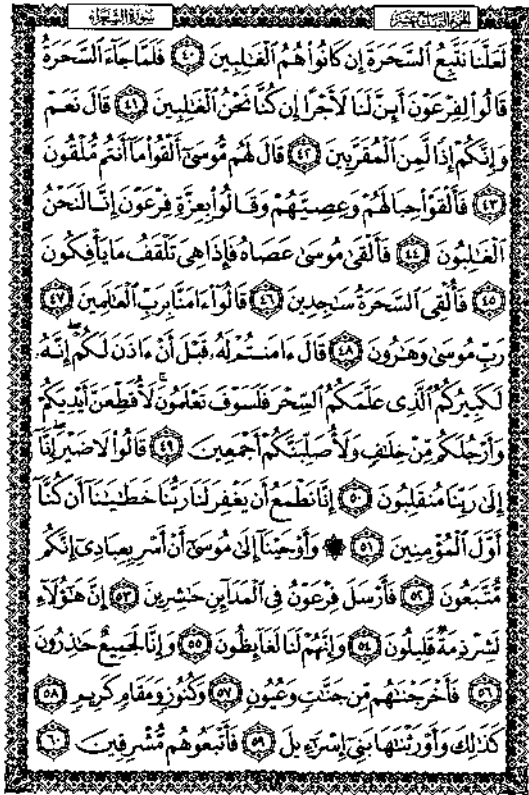 الجزء التاسع عشر
سورة الشعراء
لَعَلَّنَا نَتَّبِعُ ٱلسَّحَرَةَ إِن كَانُوا۟ هُمُ ٱلْغَٰلِبِينَ ٤٠ فَلَمَّا جَآءَ ٱلسَّحَرَةُ
قَالُوا۟ لِفِرْعَوْنَ أَئِنَّ لَنَا لَأَجْرًا إِن كُنَّا نَحْنُ ٱلْغَٰلِبِينَ ٤١ قَالَ نَعَمْ
وَإِنَّكُمْ إِذًا لَّمِنَ ٱلْمُقَرَّبِينَ ٤٢ قَالَ لَهُم مُّوسَىٰٓ أَلْقُوا۟ مَآ أَنتُم مُّلْقُونَ
٤٣ فَأَلْقَوْا۟ حِبَالَهُمْ وَعِصِيَّهُمْ وَقَالُوا۟ بِعِزَّةِ فِرْعَوْنَ إِنَّا لَنَحْنُ
ٱلْغَٰلِبُونَ ٤٤ فَأَلْقَىٰ مُوسَىٰ عَصَاهُ فَإِذَا هِىَ تَلْقَفُ مَا يَأْفِكُونَ
٤٥ فَأُلْقِىَ ٱلسَّحَرَةُ سَٰجِدِينَ ٤٦ قَالُوٓا۟ ءَامَنَّا بِرَبِّ ٱلْعَٰلَمِينَ ٤٧
رَبِّ مُوسَىٰ وَهَٰرُونَ ٤٨ قَالَ ءَامَنتُمْ لَهُۥ قَبْلَ أَنْ ءَاذَنَ لَكُمْ ۖ إِنَّهُۥ
لَكَبِيرُكُمُ ٱلَّذِى عَلَّمَكُمُ ٱلسِّحْرَ فَلَسَوْفَ تَعْلَمُونَ ۚ لَأُقَطِّعَنَّ أَيْدِيَكُمْ
وَأَرْجُلَكُم مِّنْ خِلَٰفٍ وَلَأُصَلِّبَنَّكُمْ أَجْمَعِينَ ٤٩ قَالُوا۟ لَا ضَيْرَ ۖ إِنَّآ
إِلَىٰ رَبِّنَا مُنقَلِبُونَ ٥٠ إِنَّا نَطْمَعُ أَن يَغْفِرَ لَنَا رَبُّنَا خَطَٰيَٰنَآ أَن كُنَّآ
أَوَّلَ ٱلْمُؤْمِنِينَ ٥١ ۞ وَأَوْحَيْنَآ إِلَىٰ مُوسَىٰٓ أَنْ أَسْرِ بِعِبَادِىٓ إِنَّكُم
مُّتَّبَعُونَ ٥٢ فَأَرْسَلَ فِرْعَوْنُ فِى ٱلْمَدَآئِنِ حَٰشِرِينَ ٥٣ إِنَّ هَٰٓؤُلَآءِ
لَشِرْذِمَةٌ قَلِيلُونَ ٥٤ وَإِنَّهُمْ لَنَا لَغَآئِظُونَ ٥٥ وَإِنَّا لَجَمِيعٌ حَٰذِرُونَ
٥٦ فَأَخْرَجْنَٰهُم مِّن جَنَّٰتٍ وَعُيُونٍ ٥٧ وَكُنُوزٍ وَمَقَامٍ كَرِيمٍ ٥٨
كَذَٰلِكَ وَأَوْرَثْنَٰهَا بَنِىٓ إِسْرَٰٓءِيلَ ٥٩ فَأَتْبَعُوهُم مُّشْرِقِينَ ٦٠